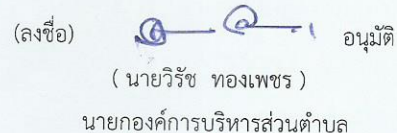 (ลงชื่อ) อนุมัติ
( นายวิรัช ทองเพชร )
นายกองค์การบริหารส่วนตำบล